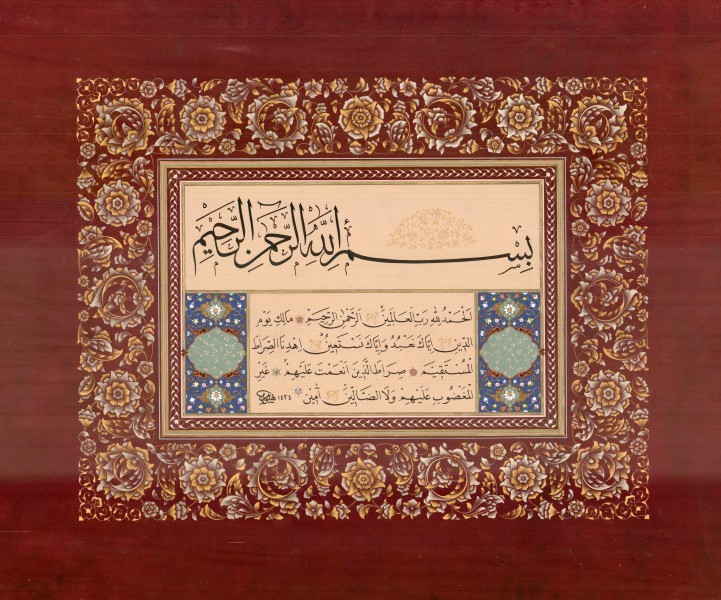 بِسْمِ اللهِ الرَّحْمٰنِ الرَّحِيْمِ
اَلْحَمْدُ لِلّٰهِ رَبِّ الْعَالَمِيْنَ الرَّحْمٰنِ الرَّحِيْمِ مَالِكِ يَوْمِ
الدِّيْنِ اِيَّاكَ نَعْبُدُ وَاِيَّاكَ نَسْتَعِيْنُ اِهْدِنَا الصِّرَاطَ
الْمُسْتَقِيْمَ صِرَاطَ الَّذِيْنَ اَنْعَمْتَ عَلَيْهِمْ غَيْرِ
الْمَغْضُوْبِ عَلَيْهِمْ وَلَا الضَّالِّيْنَ آمِيْنَ ١٤٣٤